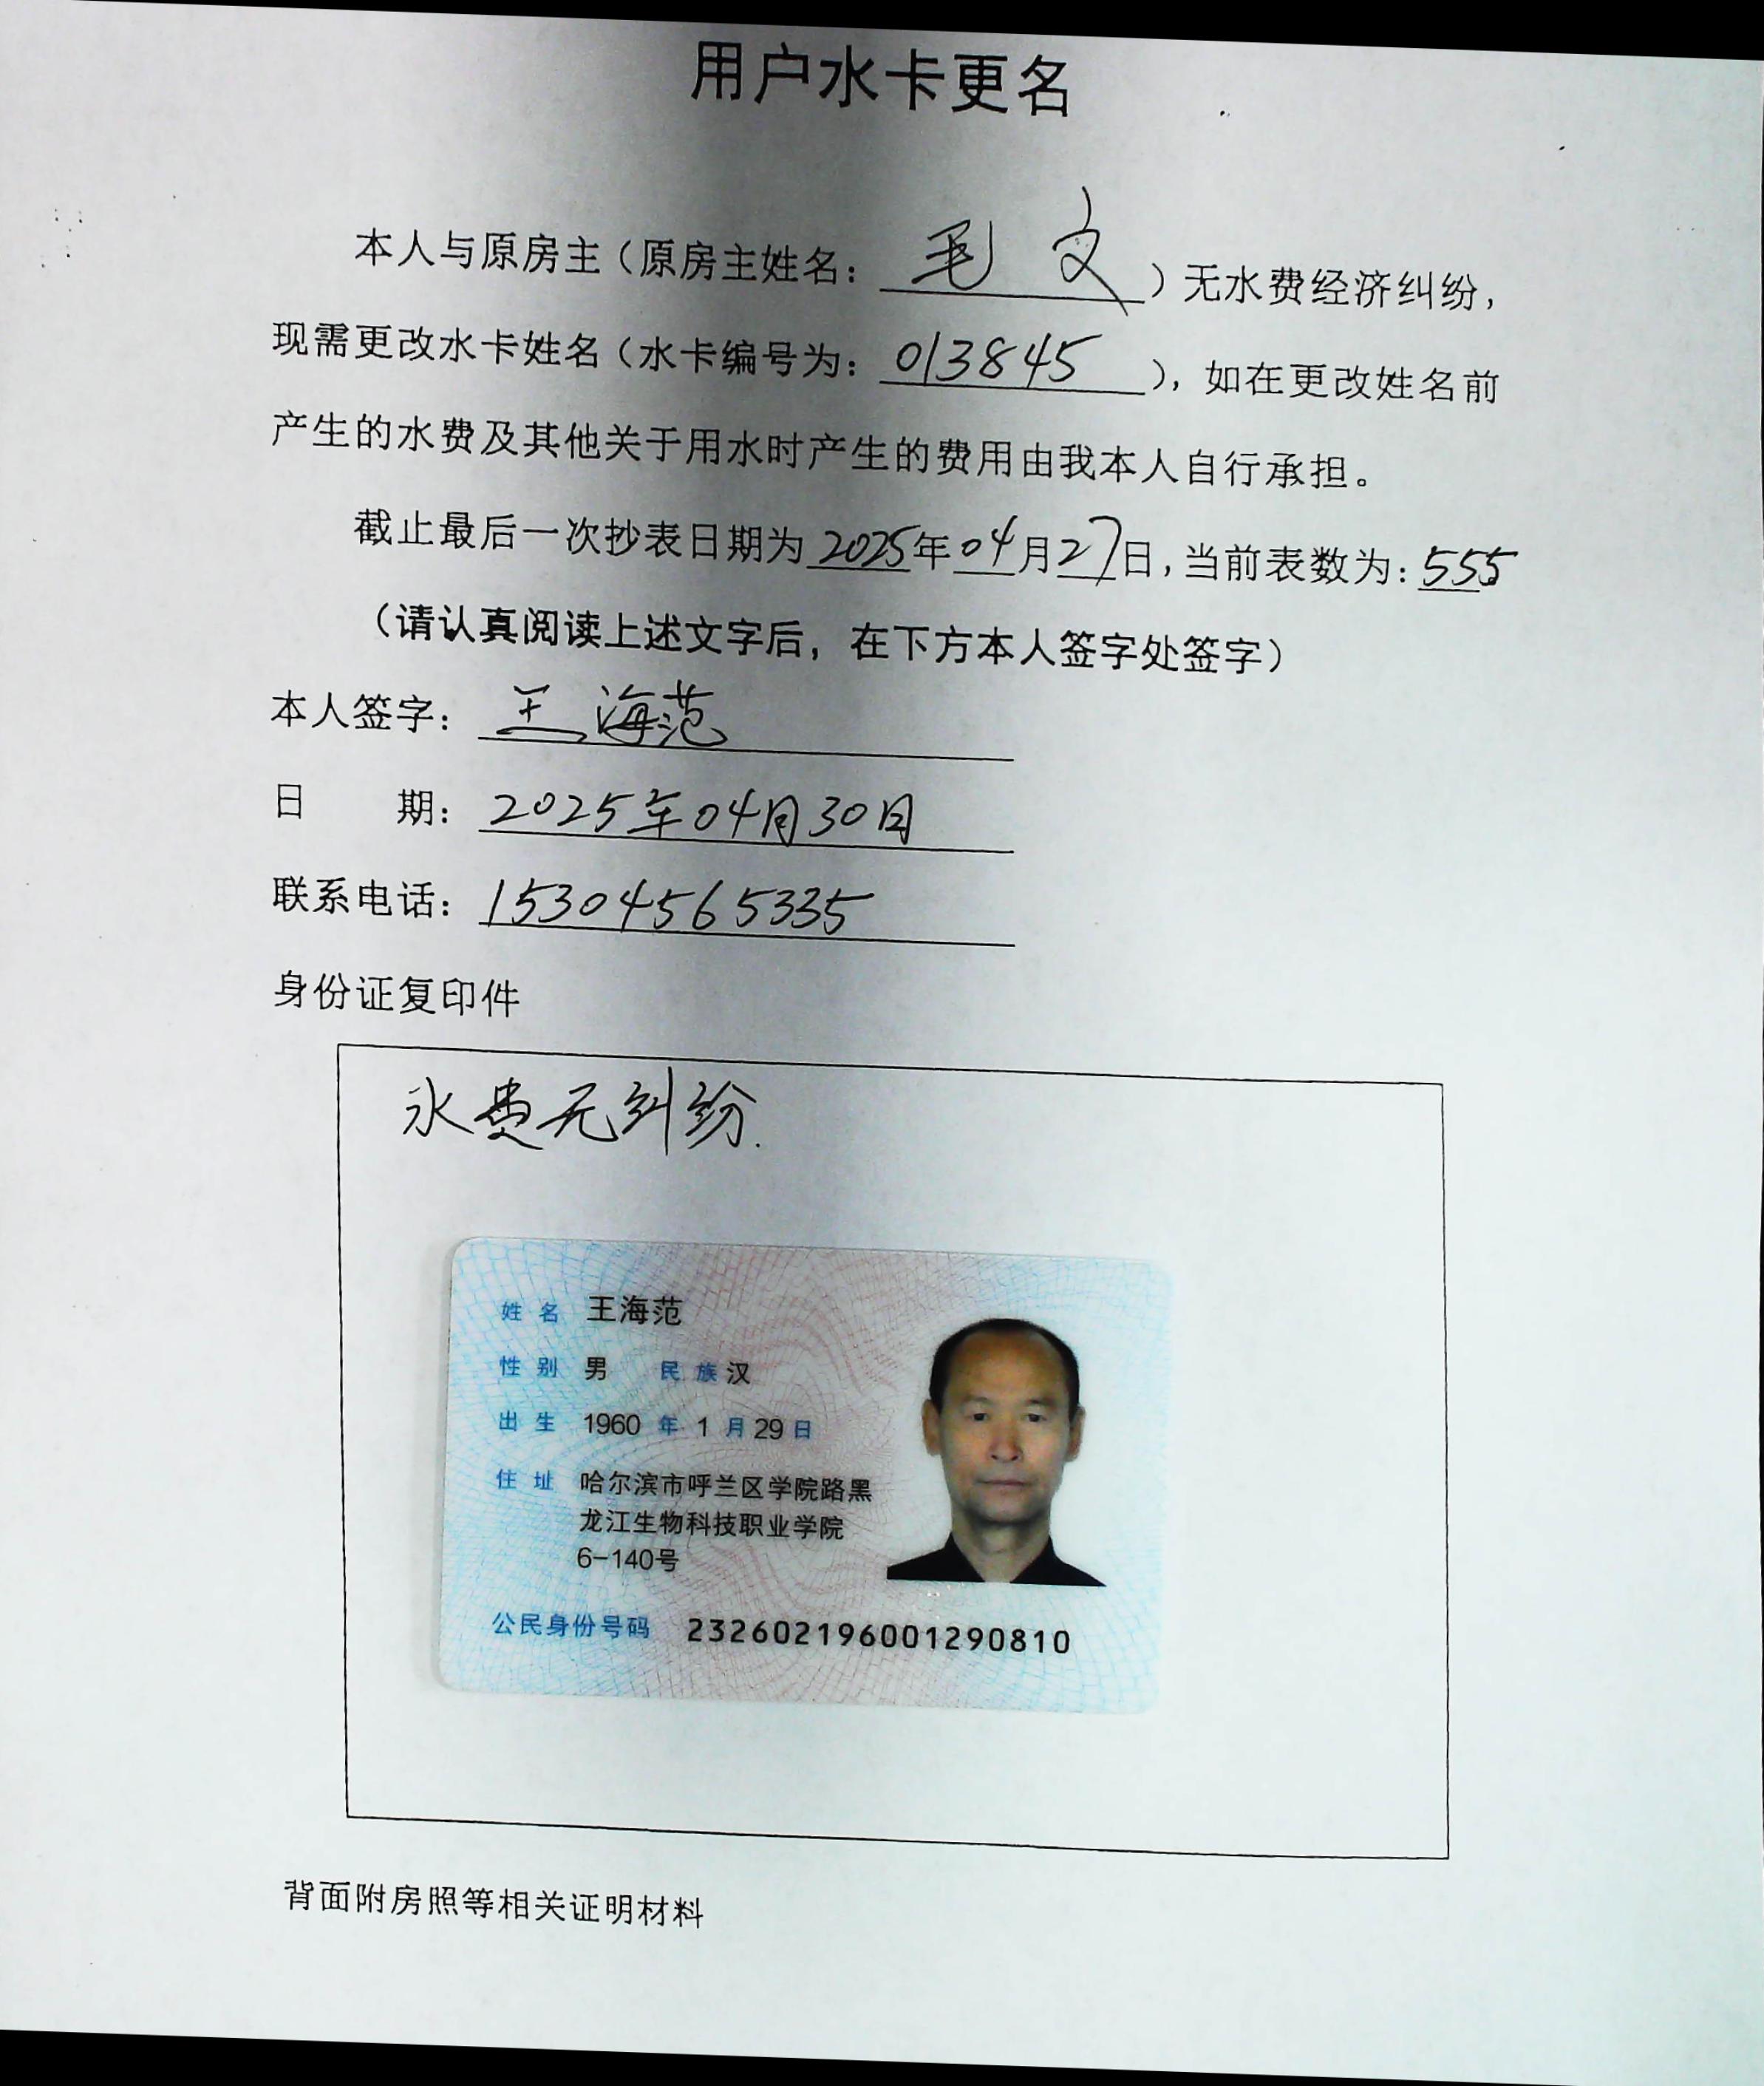 用户水卡更名
本人与原房主（原房主姓名：毛文）无水费经济纠纷，
现需更改水卡姓名（水卡编号为：013845），如在更改姓名前
产生的水费及其他关于用水时产生的费用由我本人自行承担。
截止最后一次抄表日期为2025年04月27日，当前表数为：555
（请认真阅读上述文字后，在下方本人签字处签字）
本人签字：王海范
日 期：2025年04月30日
联系电话：15304565335
身份证复印件
水费无纠纷.
姓名 王海范
性别 男 民族 汉
出生 1960年1月29日
住址 哈尔滨市呼兰区学院路黑
龙江生物科技职业学院
6-140号
公民身份号码 232602196001290810
背面附房照等相关证明材料